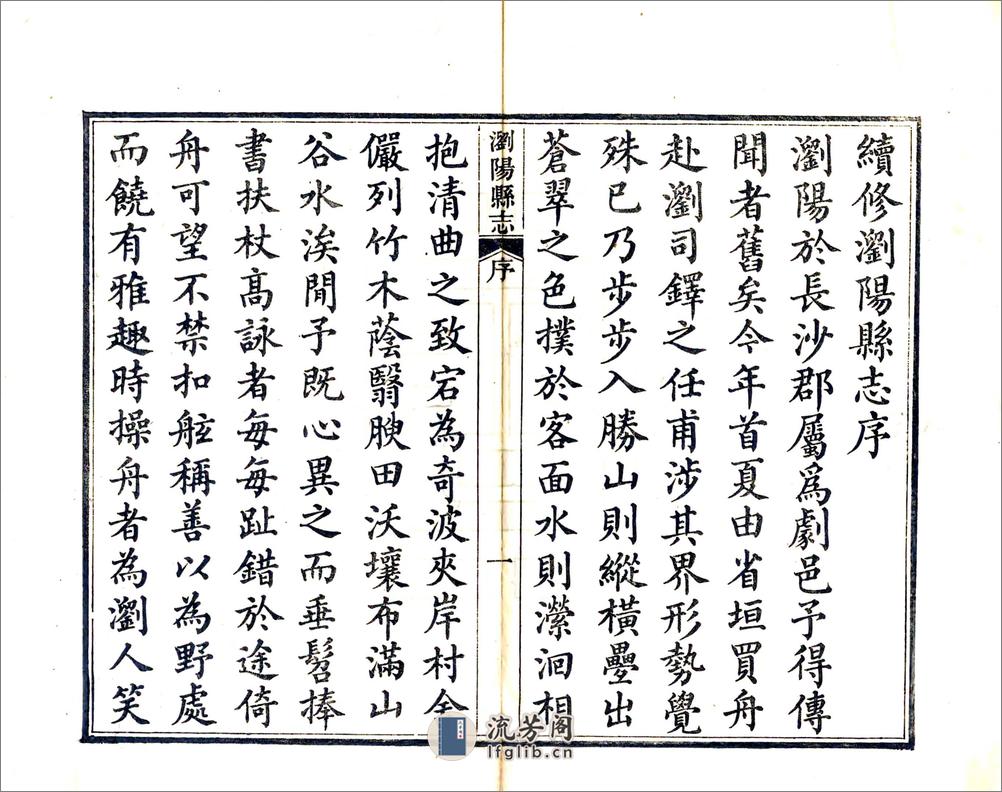 續修瀏陽縣志序
瀏陽於長沙郡屬爲劇邑予得傳
聞者舊矣今年首夏由省垣買舟
赴瀏司鐸之任甫涉其界形勢覺
殊已乃步步入勝山則縱橫疊出
蒼翠之色撲於客面水則瀠洄相
瀏陽縣志
序
一
抱清曲之致宕為奇波夾岸村舍
儼列竹木蔭翳腴田沃壤布滿山
谷水涘閒予既心異之而垂髫捧
書扶杖高詠者每每趾錯於途倚
舟可望不禁扣舷稱善以為野處
而饒有雅趣時操舟者為瀏人笑
流芳阁
lfglib.cn